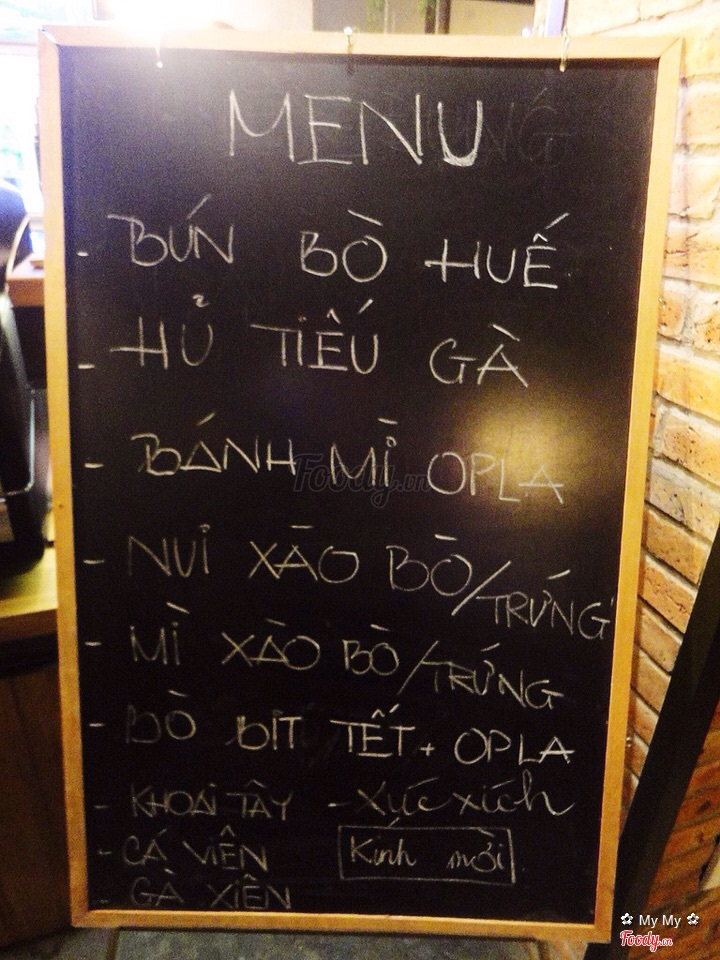 MENU
- BÚN BÒ HUẾ
- HỦ TIẾU GÀ
- BÁNH MÌ OPLA
- NUI XÀO BÒ/TRỨNG
- MÌ XÀO BÒ/TRỨNG
- BÒ BIT TẾT + OPLA
- KHOAI TÂY - Xúc xích
- CÁ VIÊN
Kính mời
- GÀ XIÊN
Foody.vn
✿ My My ✿
Foody.vn